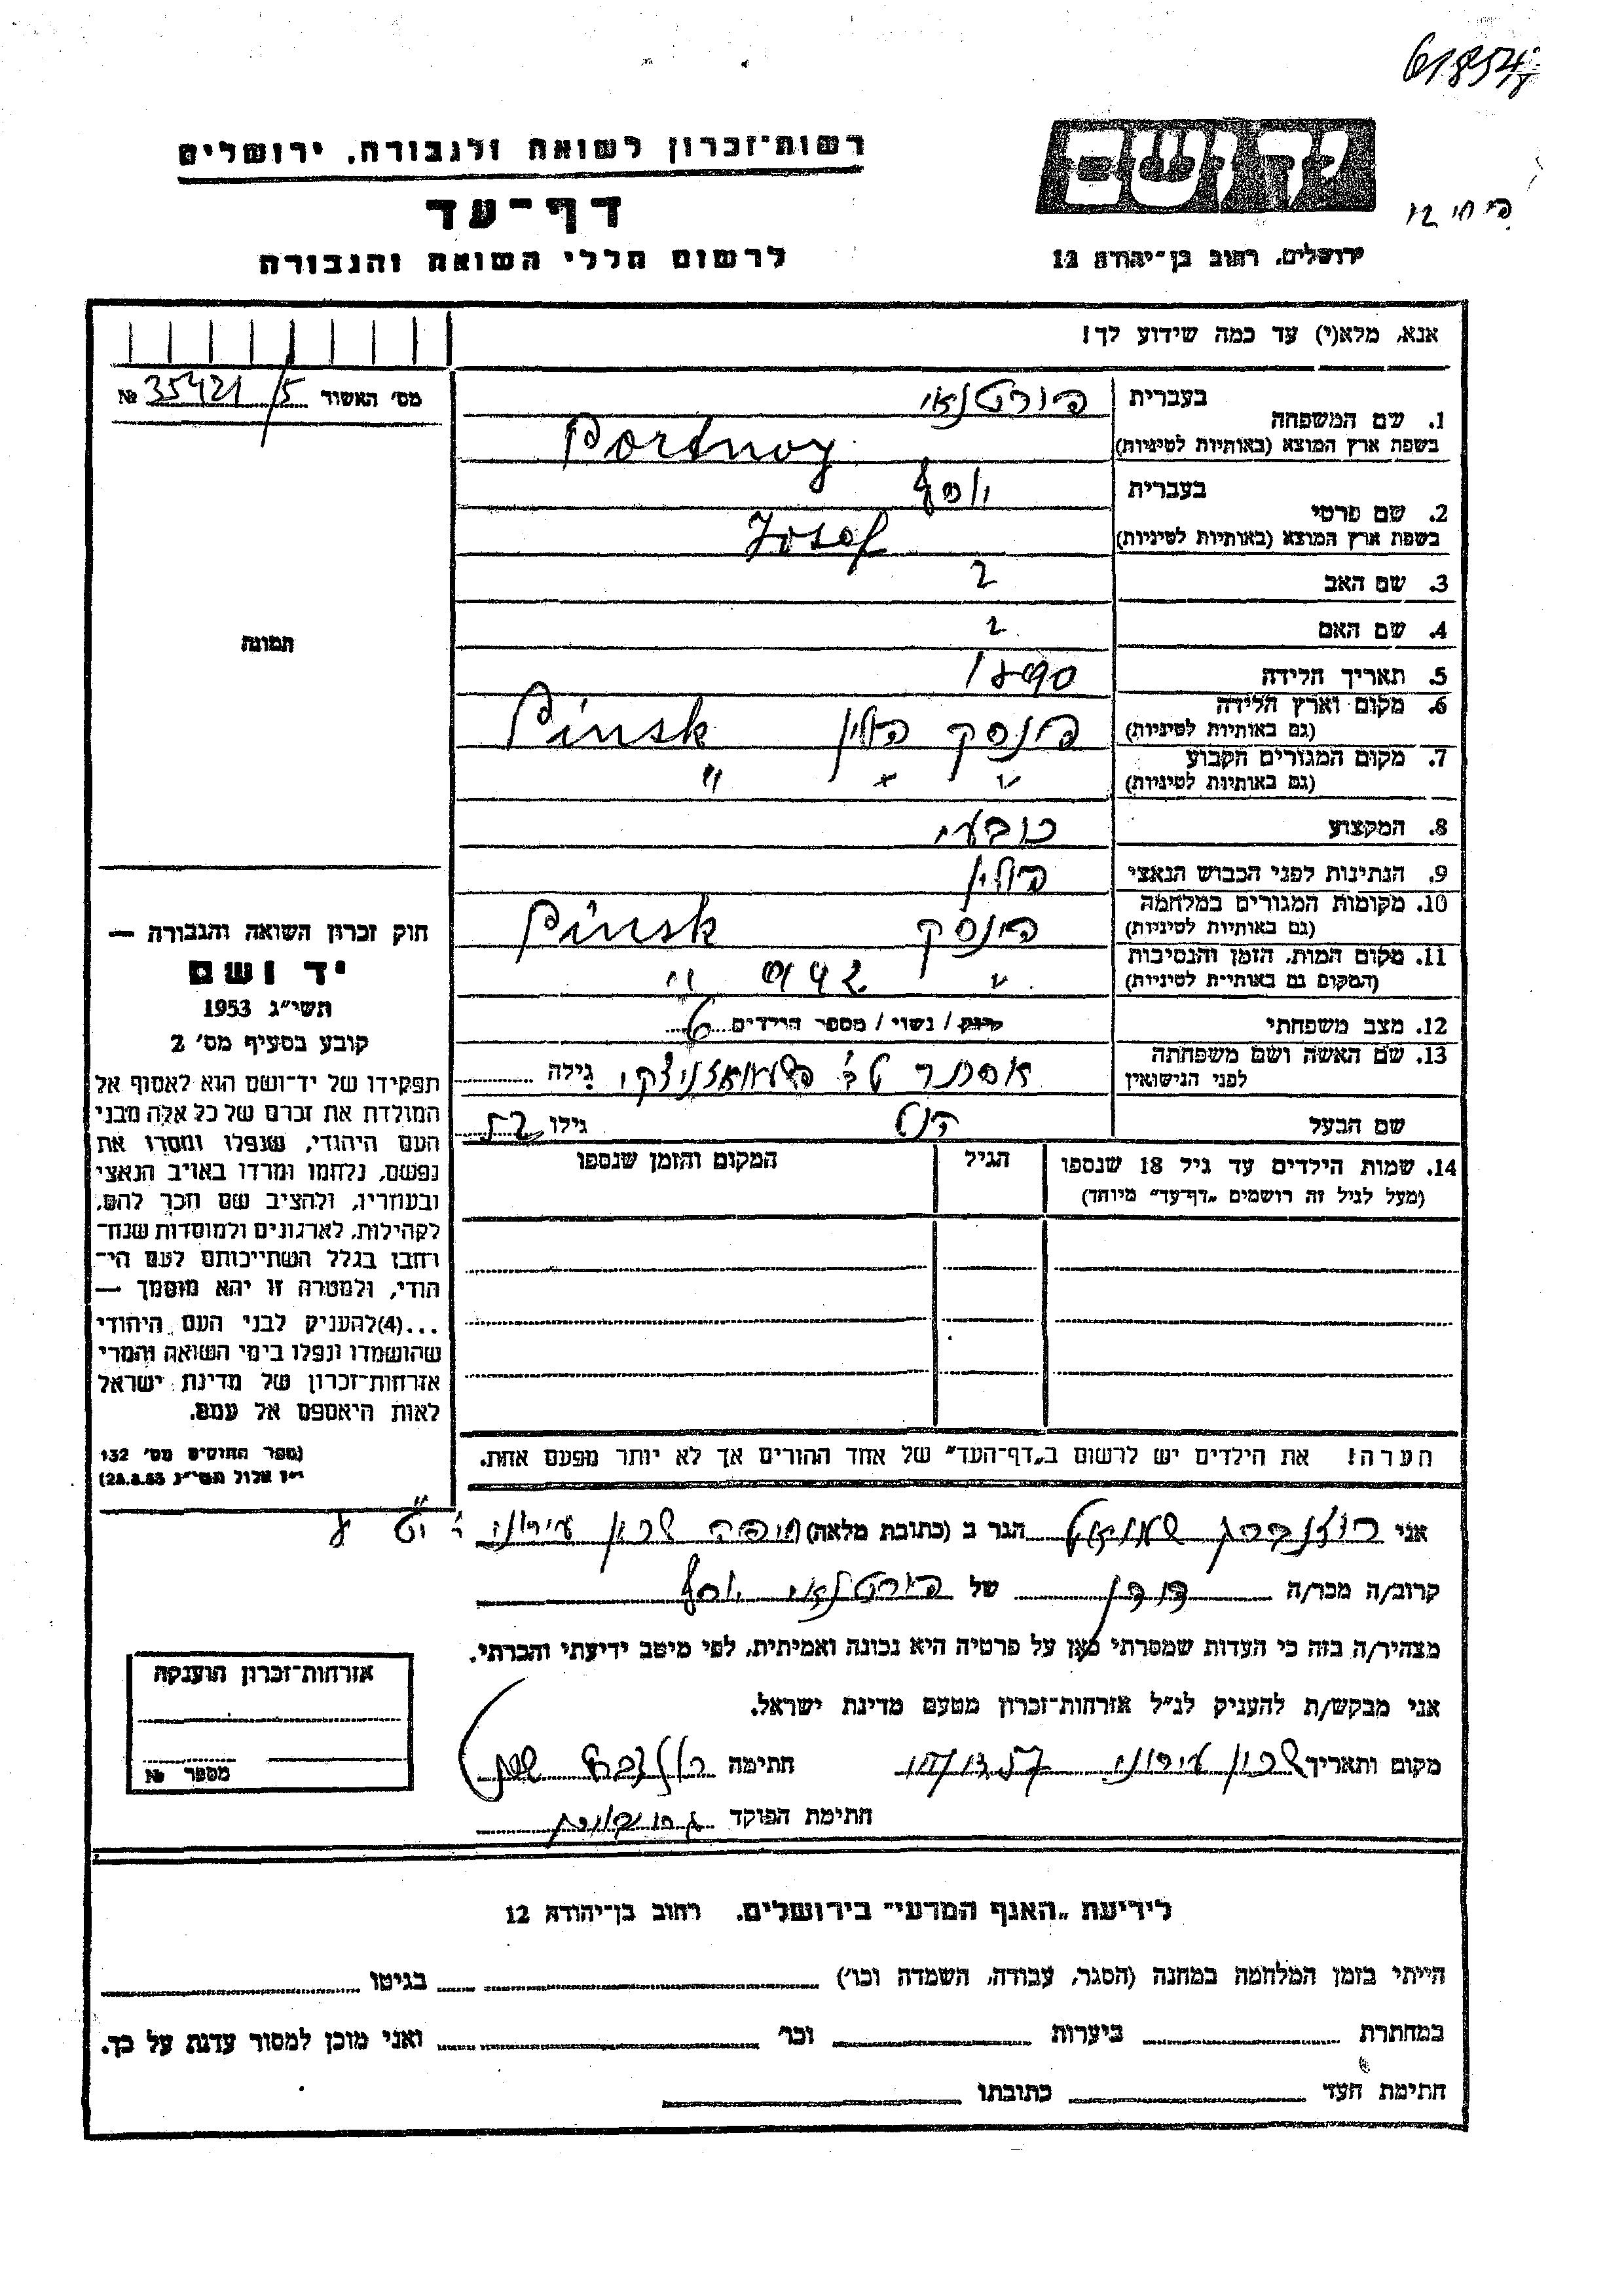 61854
רשות־זכרון לשואה ולגבורה, ירושלים
דף־עד
לרשום חללי השואה והגבורה
יד ושם
ירושלים, רחוב בן־יהודה 12
אנא, מלא(י) עד כמה שידוע לך!
מס' האשור 35421/5 №
1. שם המשפחה
בעברית פורטנאי
בשפת ארץ המוצא (באותיות לטיניות) Portnoy
2. שם פרטי
בעברית יוסף
בשפת ארץ המוצא (באותיות לטיניות) Josef
3. שם האב ?
4. שם האם ?
5. תאריך הלידה 1890
6. מקום וארץ הלידה
(גם באותיות לטיניות) פינסק פולין Pinsk
7. מקום המגורים הקבוע
(גם באותיות לטיניות) " " "
8. המקצוע כובעי
9. הנתינות לפני הכבוש הנאצי פולין
10. מקומות המגורים במלחמה
(גם באותיות לטיניות) פינסק Pinsk
11. מקום המות, הזמן והנסיבות
(המקום גם באותיות לטיניות) " 942 "
12. מצב משפחתי רווק / נשוי / מספר הילדים
13. שם האשה ושם משפחתה
לפני הנישואין אסתר גילה
שם הבעל גילו 52
14. שמות הילדים עד גיל 18 שנספו
(מעל לגיל זה רושמים „דף־עד" מיוחד)
הגיל
המקום והזמן שנספו
הערה! את הילדים יש לרשום ב„דף־העד" של אחד ההורים אך לא יותר מפעם אחת.
תמונה
חוק זכרון השואה והגבורה —
יד ושם
תשי"ג 1953
קובע בסעיף מס' 2
תפקידו של יד־ושם הוא לאסוף אל
המולדת את זכרם של כל אלה מבני
העם היהודי, שנפלו ומסרו את
נפשם, נלחמו ומרדו באויב הנאצי
ובעוזריו, ולהציב שם וזכר להם,
לקהילות, לארגונים ולמוסדות שנח־
רבו בגלל השתייכותם לעם הי־
הודי, ולמטרה זו יהא מוסמך —
...(4) להעניק לבני העם היהודי
שהושמדו ונפלו בימי השואה והמרי
אזרחות־זכרון של מדינת ישראל
לאות היאספם אל עמם.
(ספר החוקים מס' 132
י"ז אלול תשי"ג 28.8.53)
אני רוזנברג שמואל הגר ב (כתובת מלאה) חיפה שכון עירוני
קרוב/ה מכר/ה דודן של פורטנאי יוסף
מצהיר/ה בזה כי העדות שמסרתי כאן על פרטיה היא נכונה ואמיתית, לפי מיטב ידיעתי והכרתי.
אני מבקש/ת להעניק לנ"ל אזרחות־זכרון מטעם מדינת ישראל.
מקום ותאריך שכון עירוני חתימה
חתימת הפוקד
אזרחות־זכרון הוענקה
מספר №
לידיעת „האגף המדעי" בירושלים, רחוב בן־יהודה 12
הייתי בזמן המלחמה במחנה (הסגר, עבודה, השמדה וכו') בגיטו
במחתרת ביערות וכו' ואני מוכן למסור עדות על כך.
חתימת העד כתובתו